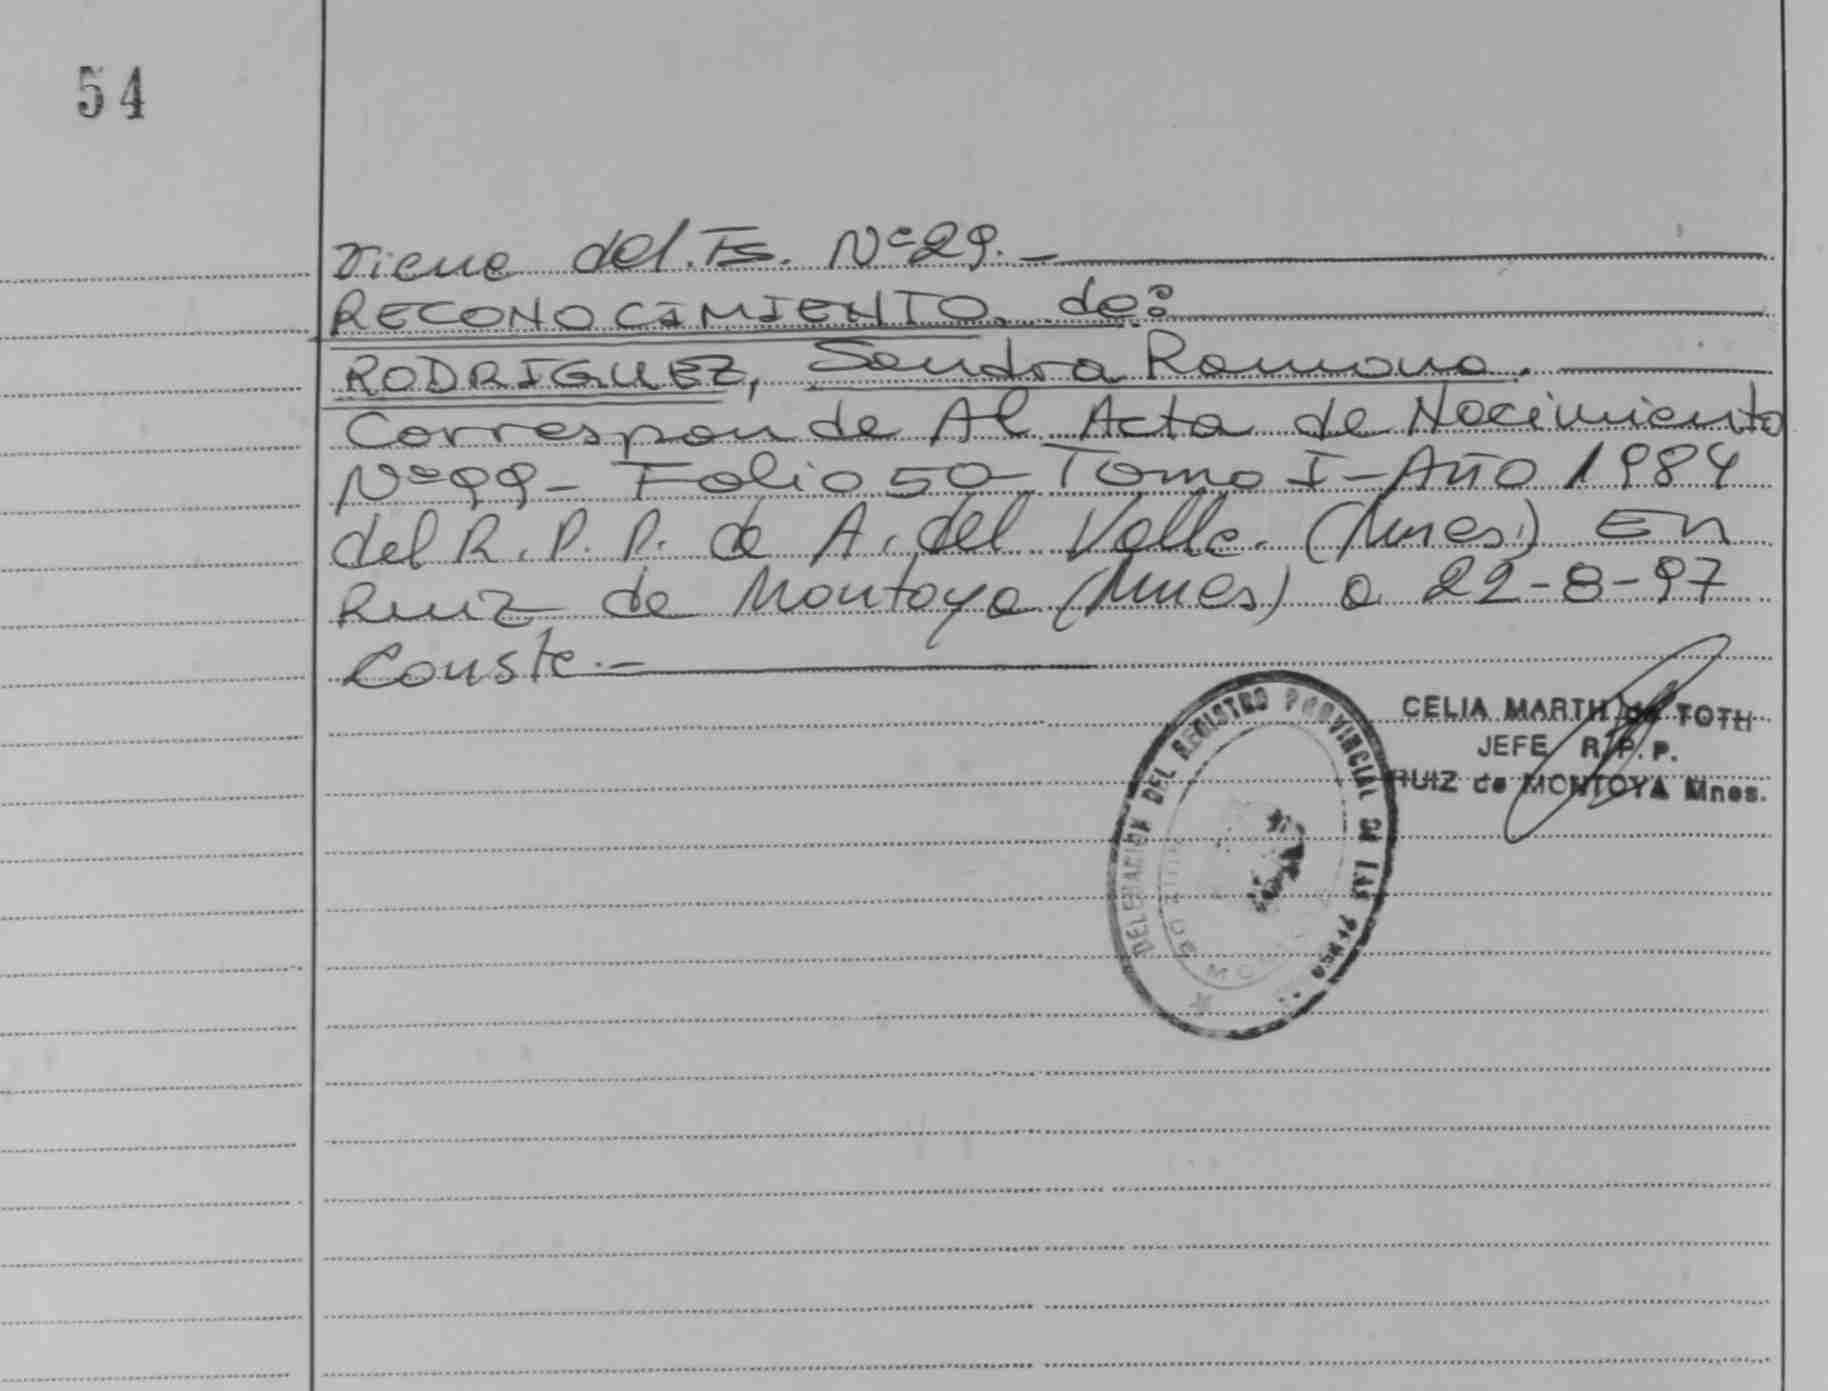 54
Viene del Fs. Nº 29.-
RECONOCIMIENTO de:
RODRIGUEZ, Sandra Ramona.
Corresponde Al Acta de Nacimiento
Nº 99 - Folio 50 - Tomo I - Año 1984
del R. P. P. de A. del Valle. (Mnes.) En
Ruiz de Montoya (Mnes) a 22-8-97
Conste.-
CELIA MARTH de TOTH
JEFE R.P.P.
RUIZ de MONTOYA Mnes.
DELEGACION DEL REGISTRO PROVINCIAL DE LAS